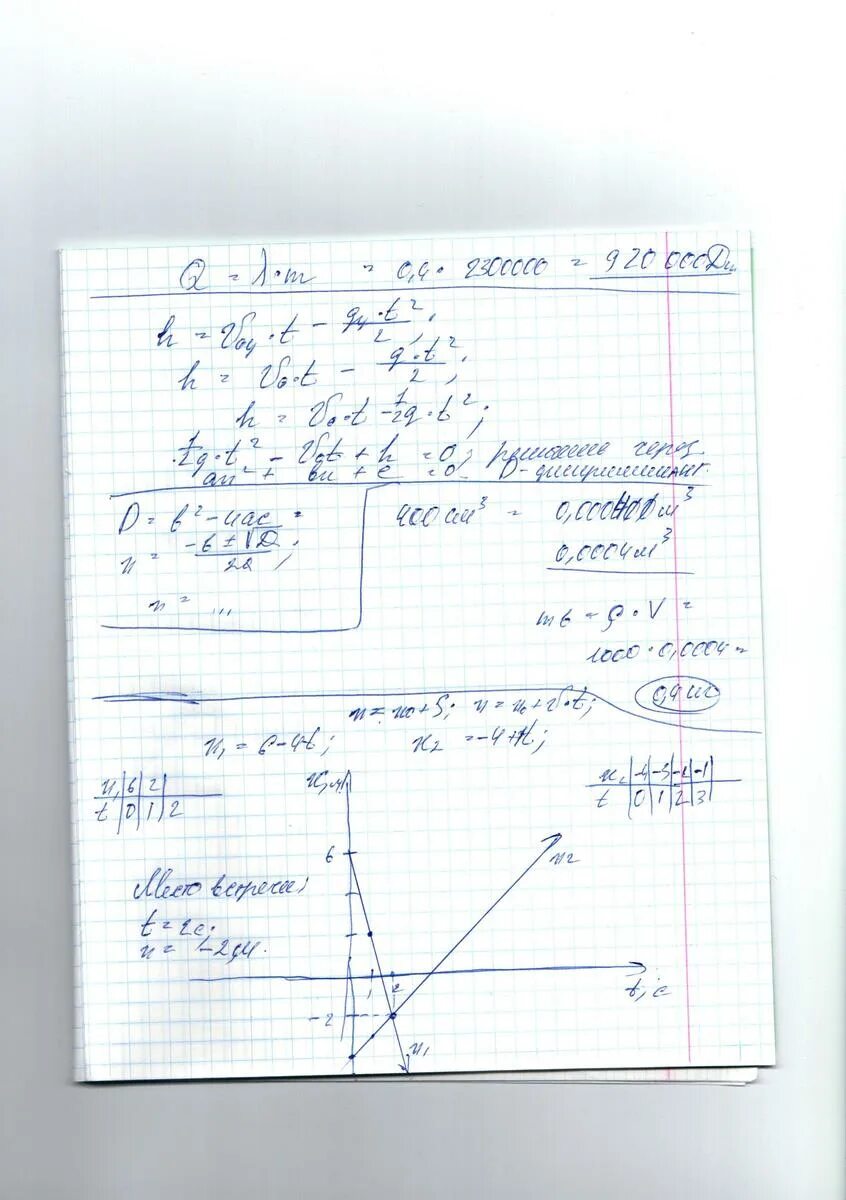 Q = λ·m = 0,4 · 2300000 = 920 000 Дж
h = v₀y·t − gy·t²/2;
h = v₀·t − g·t²/2;
h = v₀·t − 1/2g·t²;
1/2g·t² − v₀t + h = 0; решение через
ax² + bx + c = 0 D-дискриминант.
D = b² − 4ac =
x = (−b ± √D)/2a;
x = ...
400 см³ = м³
0,0004 м³
mв = ρ·V =
1000 · 0,0004 =
0,4 кг
x = x₀ + S; x = x₀ + v·t;
x₁ = 6 − 4t; x₂ = −4 + t;
x₁ | 6 | 2 |
t | 0 | 1 | 2
x₂ | -4 | -3 | -2 | -1
t | 0 | 1 | 2 | 3
x, м
6
Место встречи:
t = 2с;
x = −2м.
x₂
1 2
t, с
−2
x₁